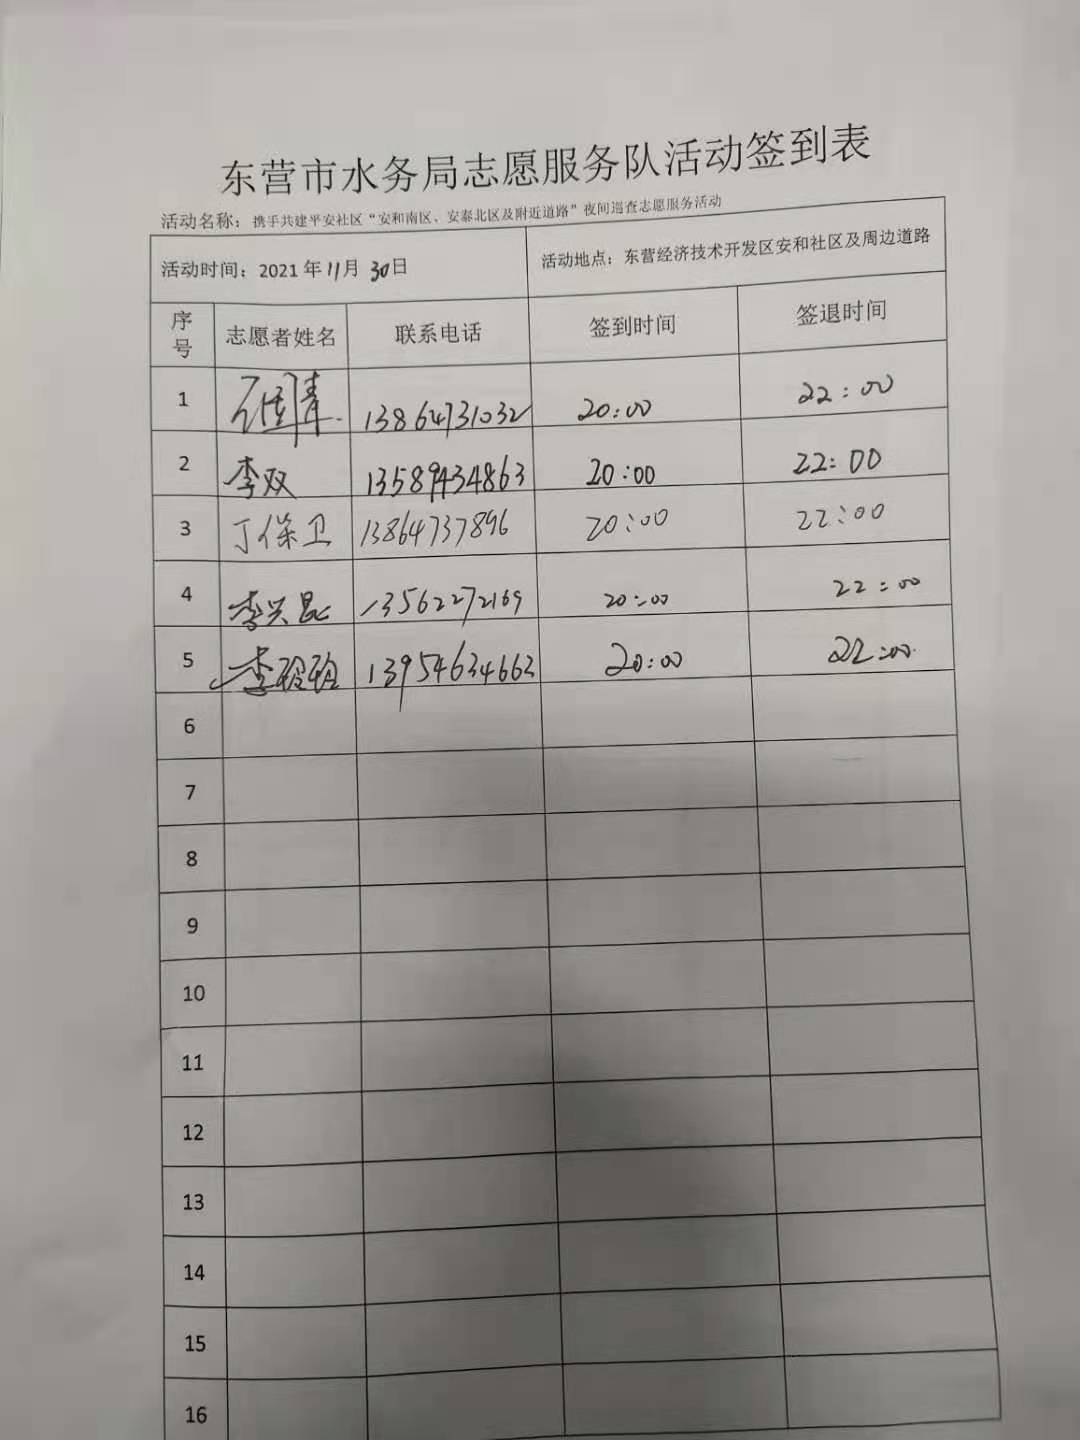 东营市水务局志愿服务队活动签到表
活动名称：携手共建平安社区“安和南区、安泰北区及附近道路”夜间巡查志愿服务活动
活动时间：2021年11月30日 活动地点：东营经济技术开发区安和社区及周边道路
序号 志愿者姓名 联系电话 签到时间 签退时间
1 13864731032 20:00 22:00
2 李双 13589434863 20:00 22:00
3 丁保卫 13864737896 20:00 22:00
4 李兴昆 13562272169 20:00 22:00
5 李 13954634663 20:00 22:00
6
7
8
9
10
11
12
13
14
15
16